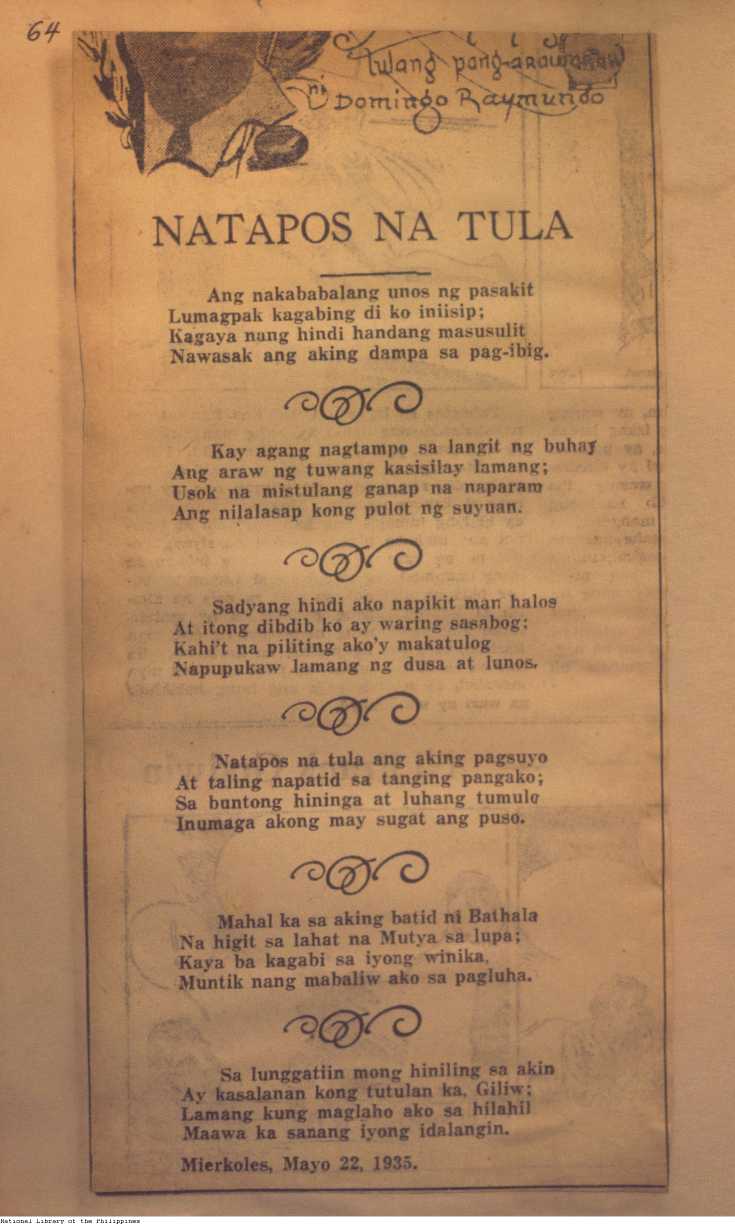 64
tulang pang-araw-araw
ni
Domingo Raymundo
NATAPOS NA TULA
Ang nakababalang unos ng pasakit
Lumagpak kagabing di ko iniisip;
Kagaya nang hindi handang masusulit
Nawasak ang aking dampa sa pag-ibig.
Kay agang nagtampo sa langit ng buhay
Ang araw ng tuwang kasisilay lamang;
Usok na mistulang ganap na naparam
Ang nilalasap kong pulot ng suyuan.
Sadyang hindi ako napikit man halos
At itong dibdib ko ay waring sasabog;
Kahi't na piliting ako'y makatulog
Napupukaw lamang ng dusa at lunos.
Natapos na tula ang aking pagsuyo
At taling napatid sa tanging pangako;
Sa buntong hininga at luhang tumulo
Inumaga akong may sugat ang puso.
Mahal ka sa aking batid ni Bathala
Na higit sa lahat na Mutya sa lupa;
Kaya ba kagabi sa iyong winika,
Muntik nang mabaliw ako sa pagluha.
Sa lunggatiin mong hiniling sa akin
Ay kasalanan kong tutulan ka, Giliw;
Lamang kung maglaho ako sa hilahil
Maawa ka sanang iyong idalangin.
Mierkoles, Mayo 22, 1935.
National Library of the Philippines